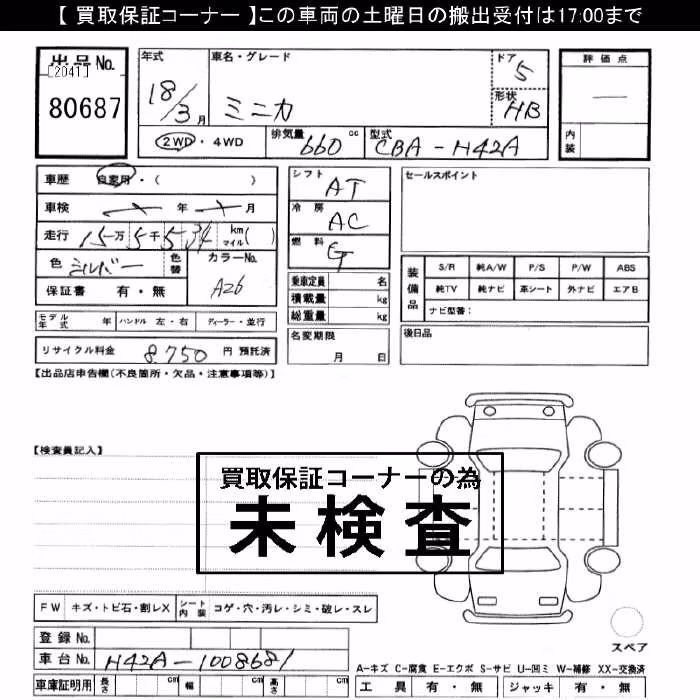 【 買取保証コーナー 】この車両の土曜日の搬出受付は17:00まで
出品No.
[2041]
80687
年式
18/3月
車名・グレード
ミニカ
ドア
5
形状
HB
評価点
―
内装
2WD・4WD
排気量 660 cc
型式 CBA-H42A
車歴 自家用・( )
車検 年 月
走行 15万5千5 km マイル( )
色 シルバー 色替
カラーNo.
A26
保証書 有・無
シフト AT
冷房 AC
燃料 G
乗車定員 名
積載量 kg
総重量 kg
セールスポイント
装備品
S/R 純A/W P/S P/W ABS
純TV 純ナビ 革シート 外ナビ エアB
ナビ型番:
モデル年式 年 ハンドル 左・右 ディーラー・並行
名変期限
月 日
後日品
リサイクル料金 8,750 円 預託済
【出品店申告欄(不良箇所・欠品・注意事項等)】
【検査員記入】
買取保証コーナーの為
未検査
FW キズ・トビ石・割レX シート内装 コゲ・穴・汚レ・シミ・破レ・スレ
スペア
登録No.
車台No. H42A-1008681
A-キズ C-腐食 E-エクボ S-サビ U-凹ミ W-補修 XX-交換済
車庫証明用 長さ cm 幅 cm 高さ cm
工具 有・無 ジャッキ 有・無